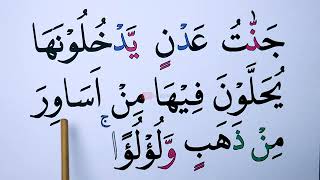 جَنّٰتُ عَدْنٍ يَّدْخُلُوْنَهَا
يُحَلَّوْنَ فِيْهَا مِنْ اَسَاوِرَ
مِنْ ذَهَبٍ وَّلُؤْلُؤًا ۚ